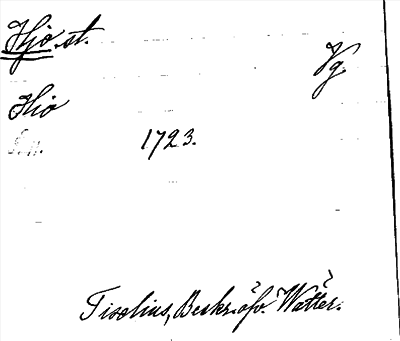 Hjo st. Vg
Hio
1723.
Tiselius, Beskr. öfv. Wätter.